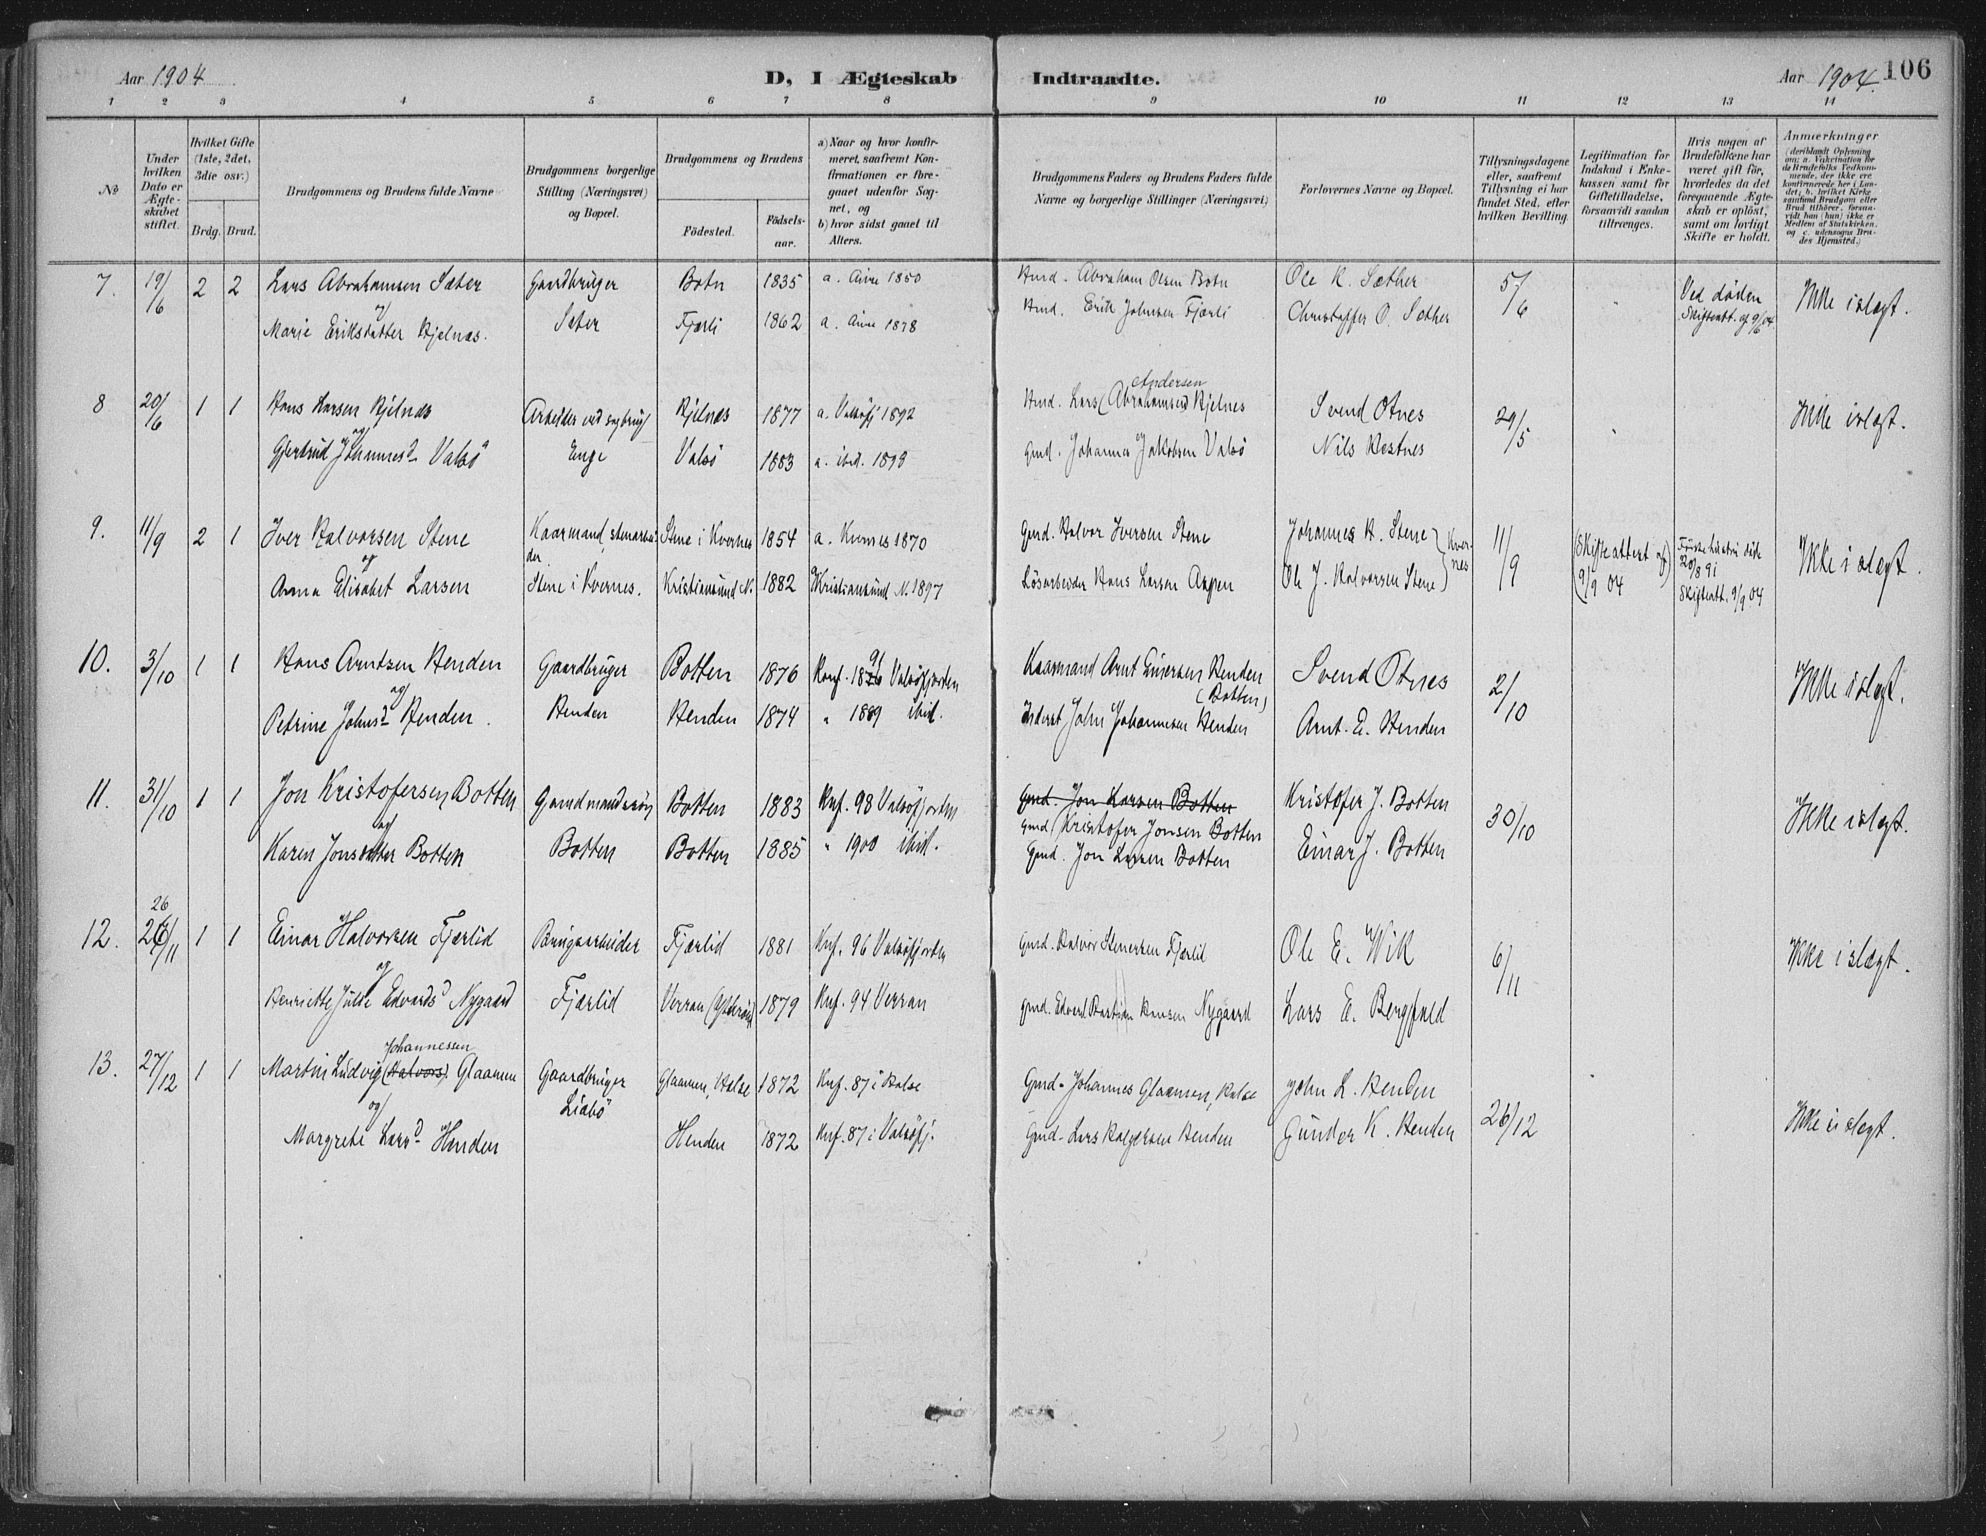 Aar 1904
D, I Ægteskab
Indtraadte.
Aar 1904.
106
1 2 3 4 5 6 7 8 9 10 11 12 13 14
No
Under hvilken Dato er Ægteskabet stiftet.
Hvilket Gifte (1ste, 2det, 3die osv.)
Brdg. Brud.
Brudgommens og Brudens fulde Navne
Brudgommens borgerlige Stilling (Næringsvei) og Bopæl.
Brudgommens og Brudens
Födested.
Födselsaar.
a) Naar og hvor konfirmeret, saafremt Konfirmationen er foregaaet udenfor Sognet, og
b) hvor sidst gaaet til Alters.
Brudgommens Faders og Brudens Faders fulde Navne og borgerlige Stillinger (Næringsvei)
Forlovernes Navne og Bopæl.
Tillysningsdagene eller, saafremt Tillysning ei har fundet Sted, efter hvilken Bevilling
Legitimation for Indskud i Enkekassen samt for Giftetilladelse, forsaavidt saadan tiltrænges.
Hvis nogen af Brudefolkene har været gift før, hvorledes da det foregaaende Ægteskab er oplöst, samt om lovligt Skifte er holdt.
Anmærkninger (deriblandt Oplysning om: a. Vakcination for de Brudefolks Vedkommende, der ikke ere konfirmerede her i Landet; b. hvilket Kirkesamfund Brudgom eller Brud tilhörer, forsaavidt han (hun) ikke er Medlem af Statskirken, og c. udensogns Brudes Hjemsted.)
7. 19/6 2 2 Lars Abrahamsen Sæter Gaardbruger Botn 1835 a. Aure 1850 Abraham Olsen Botn Ole K. Sæther 5/6 Ved døden Ikke i slægt.
og
Marie Eriksdatter Kjelnæs. Sæter Fjærli 1862 a. Aure 1878 Erik Johnsen Fjærli Christoffer O. Sæther Skifteatt. af 9/6 04
8 20/6 1 1 Hans Larsen Kjelnæs Arbeider ved sagbrug Kjelnæs 1877 a. Valsøfj 1892 Lars (Abrahamsen) Andersen Kjelnes Svend Otnes 29/5 Ikke i slægt.
og
Gjertrud Johannesd. Valsø Enge Valsø 1883 a. ibid. 1898 Gmd. Johannes Jakobsen Valsø Nils Kestnes
9. 11/9 2 1 Iver Halvorsen Stene Kaarmand, stenarbeider Stene i Kvernes 1854 a. Kvernes 1870 Gmd. Halvor Iversen Stene Johannes H. Stene } Kvernes 11/9 (Skifteattest af 9/9 04) Første hustru døde 20/8 91 Ikke i slægt.
og
Anna Elisabet Larsen Stene i Kvernes. Kristiansund N. 1882 Kristiansund N. 1897 Løsarbeider Hans Larsen Aspen Ole J. Halvorsen Stene Skifteatt. 9/9 04
10. 3/10 1 1 Hans Arntsen Henden Gaardbruger Botten 1876 Konf. 1891 Valsøfjorden Kaarmand Arnt Einersen Henden (Botten) Svend Otnes 2/10 Ikke i slægt.
og
Petrine Johnsd. Henden. Henden Henden 1874 " 1889 ibid. Inderst John Johannesen Henden Arnt. E. Henden
11. 31/10 1 1 Jon Kristofersen Botten Gaardmandssøn Botten 1883 Knf. 98 Valsøfjorden Gmd. Jon Larsen Botten Kristofer J. Botten 30/10 Ikke i slægt.
og Gmd. Kristofer Jonsen Botten
Karen Jonsdatter Botten Botten Botten 1885 " 1900 ibid. Gmd. Jon Larsen Botten Einar J. Botten
12. 26/11 26 1 1 Einar Halvorsen Fjærlid Brugsarbeider Fjærlid 1881 Knf. 96 Valsøfjorden Gmd. Halvor Stenersen Fjærlid Ole E. Wik 6/11 Ikke i slægt.
og
Henriette Julie Edvardsd. Nygaard Fjærlid Verran (Ytterøen) 1879 Knf. 94 Verran Gmd. Edvard Bastian Hansen Nygaard Lars E. Bergfald
13. 27/12 1 1 Martin Ludvig (Halvors) Johannessen Glaamen Gaardbruger Glaamen, Halse 1872 Knf. 87 i Halse Gmd. Johannes Glaamen, Halse John L. Henden 26/12 Ikke i slægt.
og Lidbø
Margrete Larsd. Henden Henden 1872 Knf. 87 i Valsøfj. Gmd. Lars Holgersen Henden Gunder K. Henden